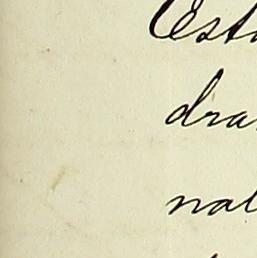 Est
dra
nat